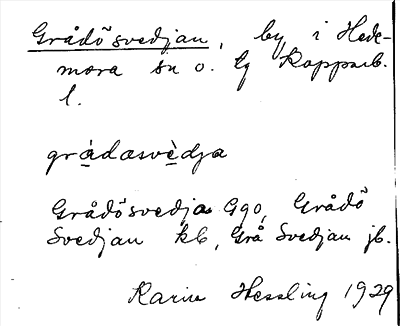 Grådösvedjan, by i Hede-
mora sn o. tg Kopparb.
l.
gràdasvèdja
Grådösvedja Ggo, Grådö
Svedjan kb, Grå Svedjan jb.
Karin Hessling 1929